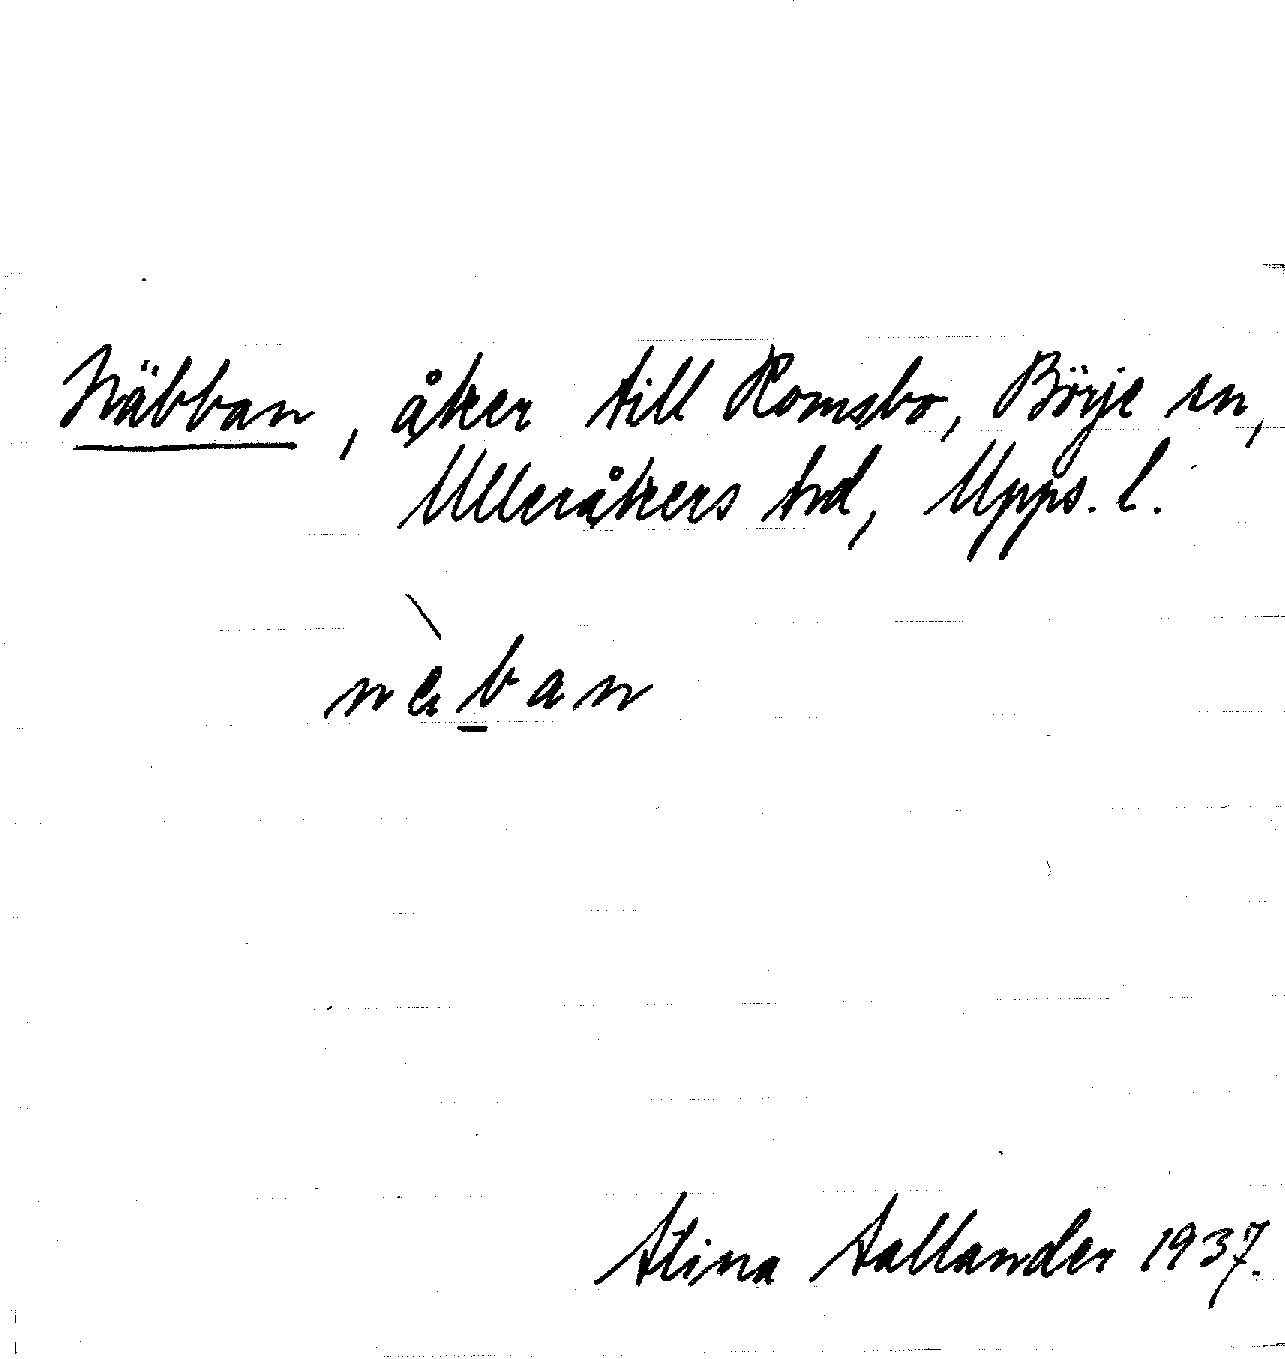 Näbban, åker till Romsbo, Börje sn,
Ulleråkers hd, Upps. l.
nèban
Stina Sallander 1937.